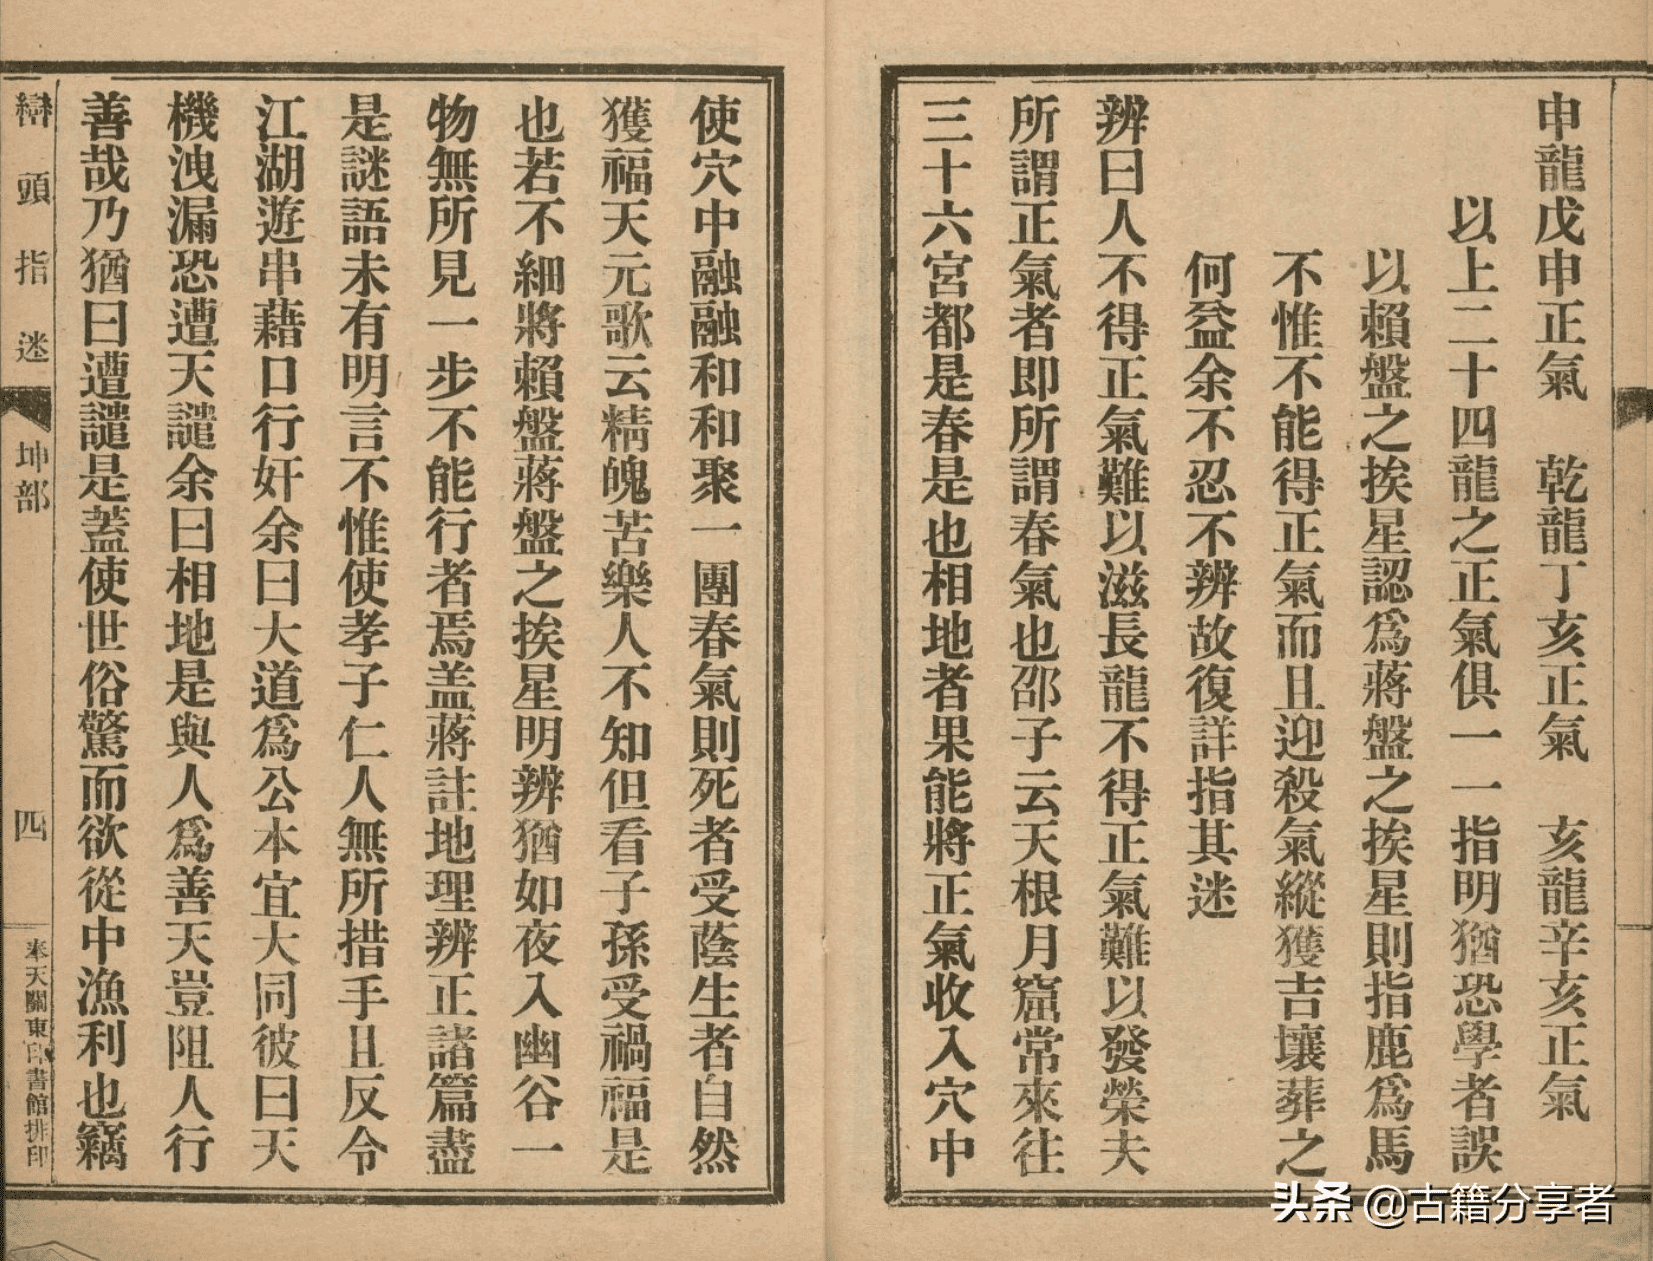 申龍戊申正氣　乾龍丁亥正氣　亥龍辛亥正氣
以上二十四龍之正氣俱一一指明猶恐學者誤
以賴盤之挨星認爲蔣盤之挨星則指鹿爲馬
不惟不能得正氣而且迎殺氣縱獲吉壤葬之
何益余不忍不辨故復詳指其迷
辨曰人不得正氣難以滋長龍不得正氣難以發榮夫
所謂正氣者即所謂春氣也邵子云天根月窟常來往
三十六宮都是春是也相地者果能將正氣收入穴中
使穴中融融和和聚一團春氣則死者受蔭生者自然
獲福天元歌云精魄苦樂人不知但看子孫受禍福是
也若不細將賴盤蔣盤之挨星明辨猶如夜入幽谷一
物無所見一步不能行者焉盖蔣註地理辨正諸篇盡
是謎語未有明言不惟使孝子仁人無所措手且反令
江湖遊串藉口行奸余曰大道爲公本宜大同彼曰天
機洩漏恐遭天譴余曰相地是與人爲善天豈阻人行
善哉乃猶曰遭譴是蓋使世俗驚而欲從中漁利也竊
巒頭指迷
坤部
四
奉天關東印書館排印
头条 @古籍分享者